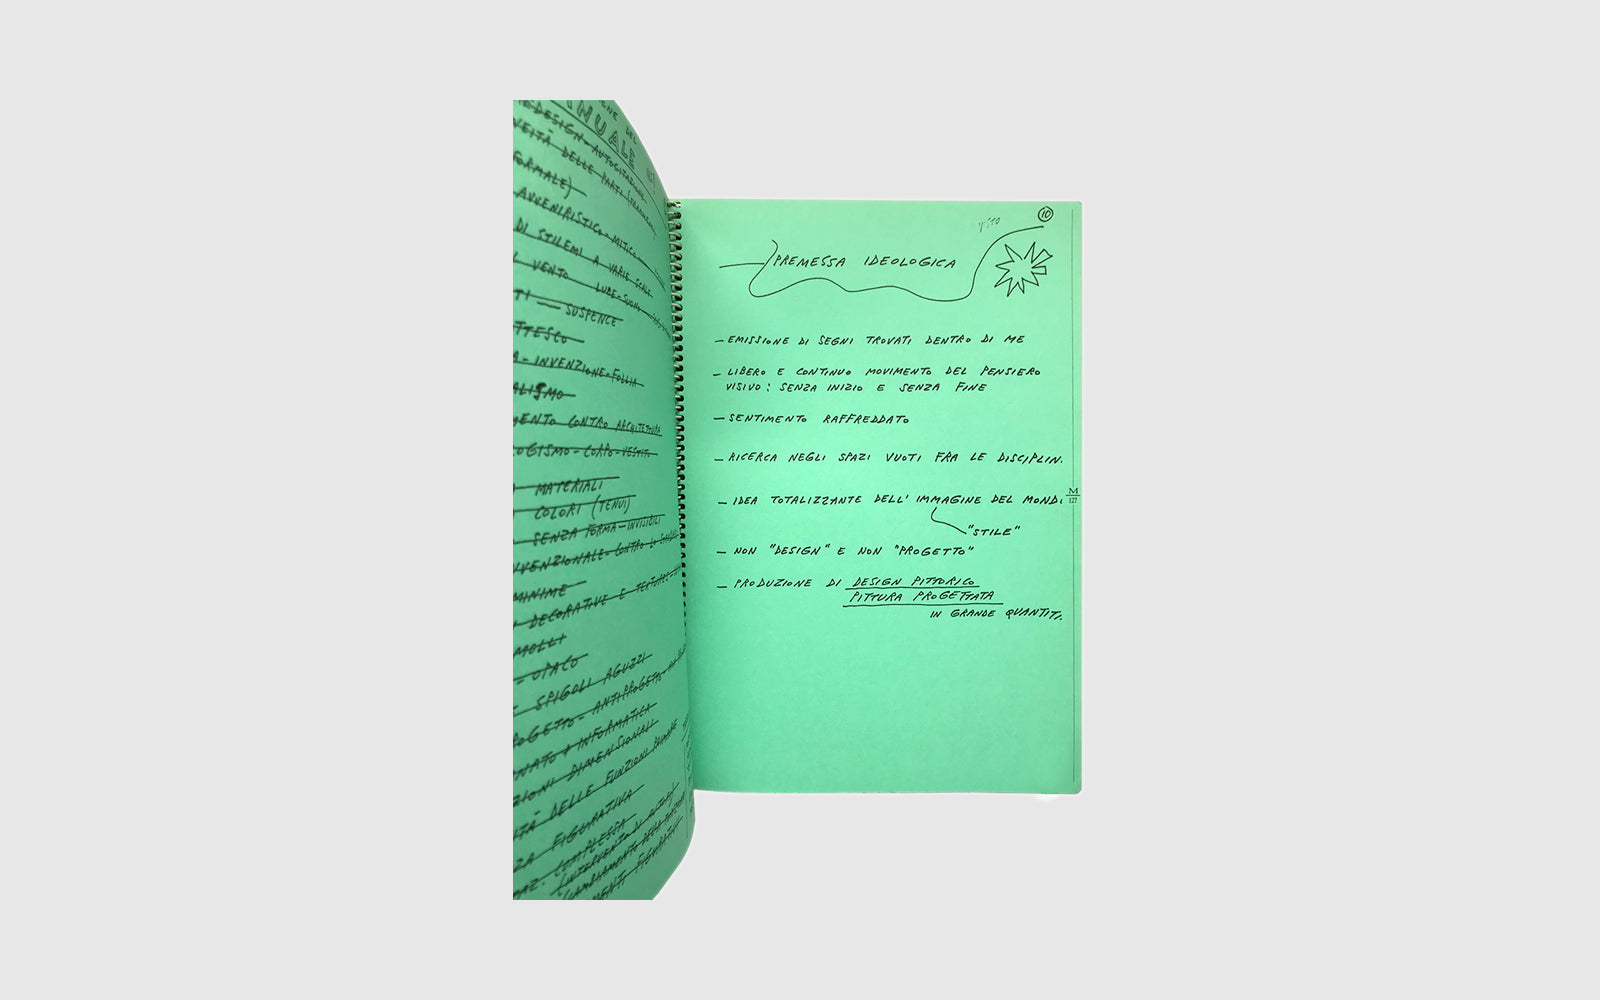 MANUALE
DESIGN-AUTOCITAZIONE
DELLE PARTI
FORMALE)
AVVENIRISTICO-MITICO
DI STILEMI A VARIE SCALE
VENTO LUCE-SUONO
TI — SUSPENCE
TTESCO
A-INVENZIONE-FOLLIA
ALISMO
MENTO CONTRO ARCHITETTURA
LOGISMO-CORPO-VESTITO
MATERIALI
COLORI (TENUI)
SENZA FORMA-INVISIBILI
VVENZIONALE-CONTRO LO
MINIME
DECORATIVE E TEXTURES
MOLLI
- OPACO
- SPIGOLI AGUZZI
ROGETTO-ANTIPROGETTO
INFORMATICA
ZIONI DIMENSIONALI
TÀ DELLE FUNZIONI PRIMARIE
ZA FIGURATIVA
COMPLESSA
(INTERVENTO DI
(CAMBIAMENTO DELLA
MENTI FIGURATIVI
VITO
10
PREMESSA IDEOLOGICA
— EMISSIONE DI SEGNI TROVATI DENTRO DI ME
— LIBERO E CONTINUO MOVIMENTO DEL PENSIERO
VISIVO: SENZA INIZIO E SENZA FINE
— SENTIMENTO RAFFREDDATO
— RICERCA NEGLI SPAZI VUOTI FRA LE DISCIPLIN
— IDEA TOTALIZZANTE DELL' IMMAGINE DEL MONDO
"STILE"
— NON "DESIGN" E NON "PROGETTO"
— PRODUZIONE DI DESIGN PITTORICO
PITTURA PROGETTATA
IN GRANDE QUANTIT
M
127